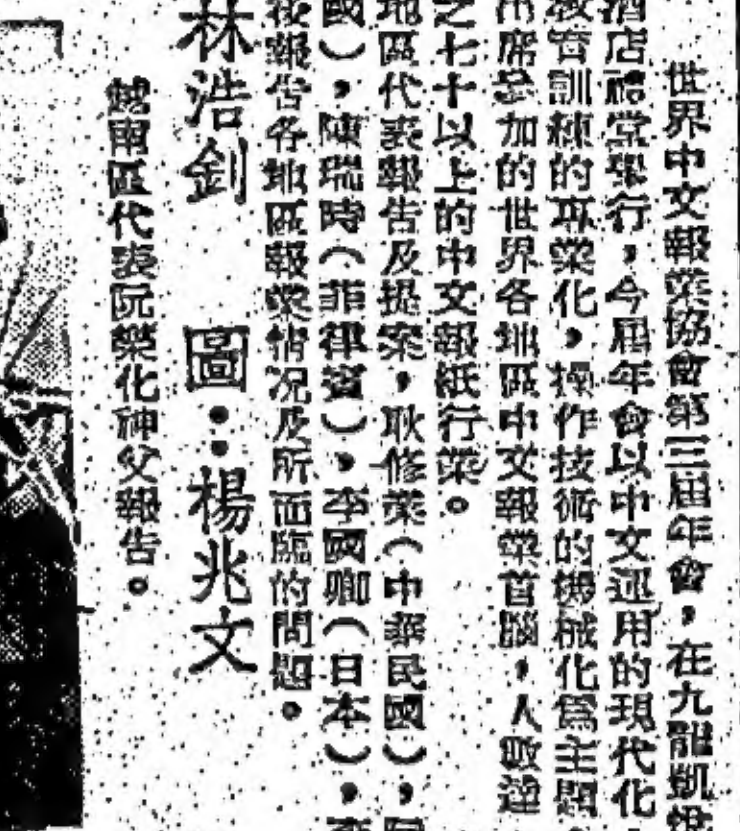 世界中文報業協會第三屆年會，在九龍凱
酒店禮堂舉行，今屆年會以中文運用的現代化
教育訓練的專業化，操作技術的機械化為主題
出席參加的世界各地區中文報業首腦，人數達
之七十以上的中文報紙行業。
地區代表報告及提案，耿修業（中華民國），
國），陳瑞時（菲律賓），李國卿（日本），
報告各地區報業情况及所面臨的問題。
林浩釗 圖：楊兆文
越南區代表阮樂化神父報告。